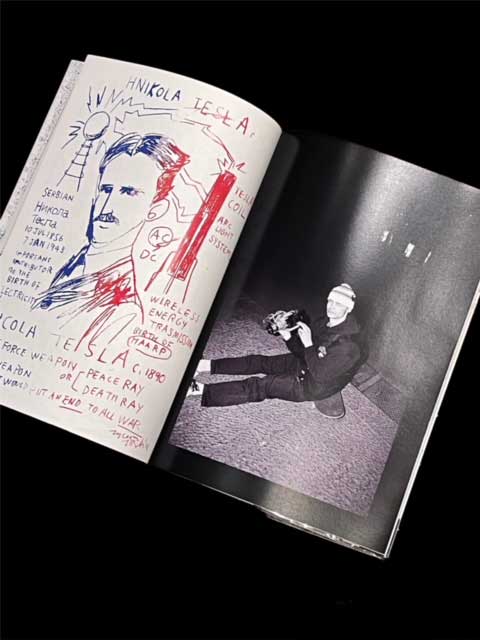 NIKOLA TESLA.
SERBIAN
Никола
Тесла
10 JUL 1856
7 JAN 1943
IMPORTANT
CONTRIBUTOR
TO THE
BIRTH OF
ELECTRICITY
TESLA
COIL
ARC
LIGHT
SYSTEM
AC
DC
WIRELESS
ENERGY
TRASMISSION
BIRTH OF
HAARP
NICOLA TESLA C. 1890
FORCE WEAPON PEACE RAY
WEAPON OR DEATH RAY
WOULD PUT AN END TO ALL WAR